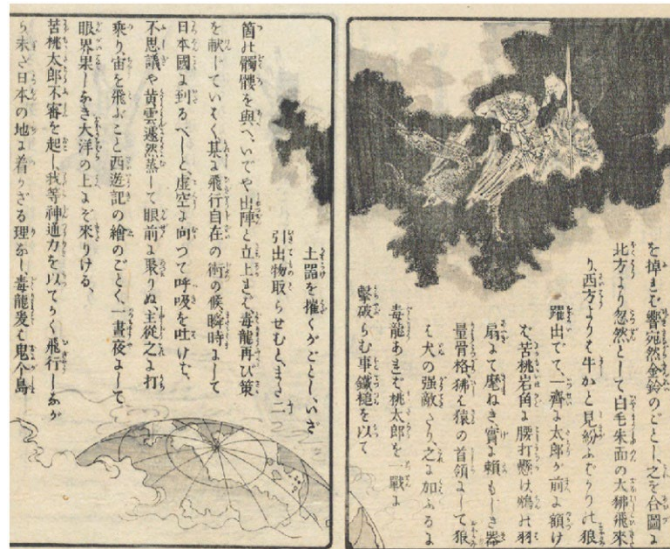 を掉れば響宛然金鈴のごとし、之を合圖に
北方より忽然として白毛朱面の大狒飛來
り、西方よりも牛かと見紛ふばかりの狼
躍出でて、一齊に太郎が前に額け
ば、苦桃岩角に腰打懸け鴆の羽
扇にて麾ねき、實に頼もしき器
量骨格、狒は猿の首領にして狼
は犬の強敵たり、之に加ふるに
毒龍あれば桃太郎を一戰に
撃破らむ事、鐵槌を以て
土器を摧くがごとし、いざ
引出物取らせむと、まさに二
箇の髑髏を與へ、いでや出陣と立上れば、毒龍再び策
を献じていはく、某に飛行自在の術の候、瞬時にして
日本國に到るべしと、虚空に向つて呼吸を吐けば、
不思議や黄雲蓬然蒸して眼前に聚りぬ、主從之に打
乘り宙を飛ぶこと西遊記の繪のごとく、一晝夜にして
眼界果しなき大洋の上にぞ來りける、
苦桃太郎不審を起し、我等神通力を以てかく飛行しなが
ら未だ日本の地に着かざる理なし、毒龍爰は鬼个島